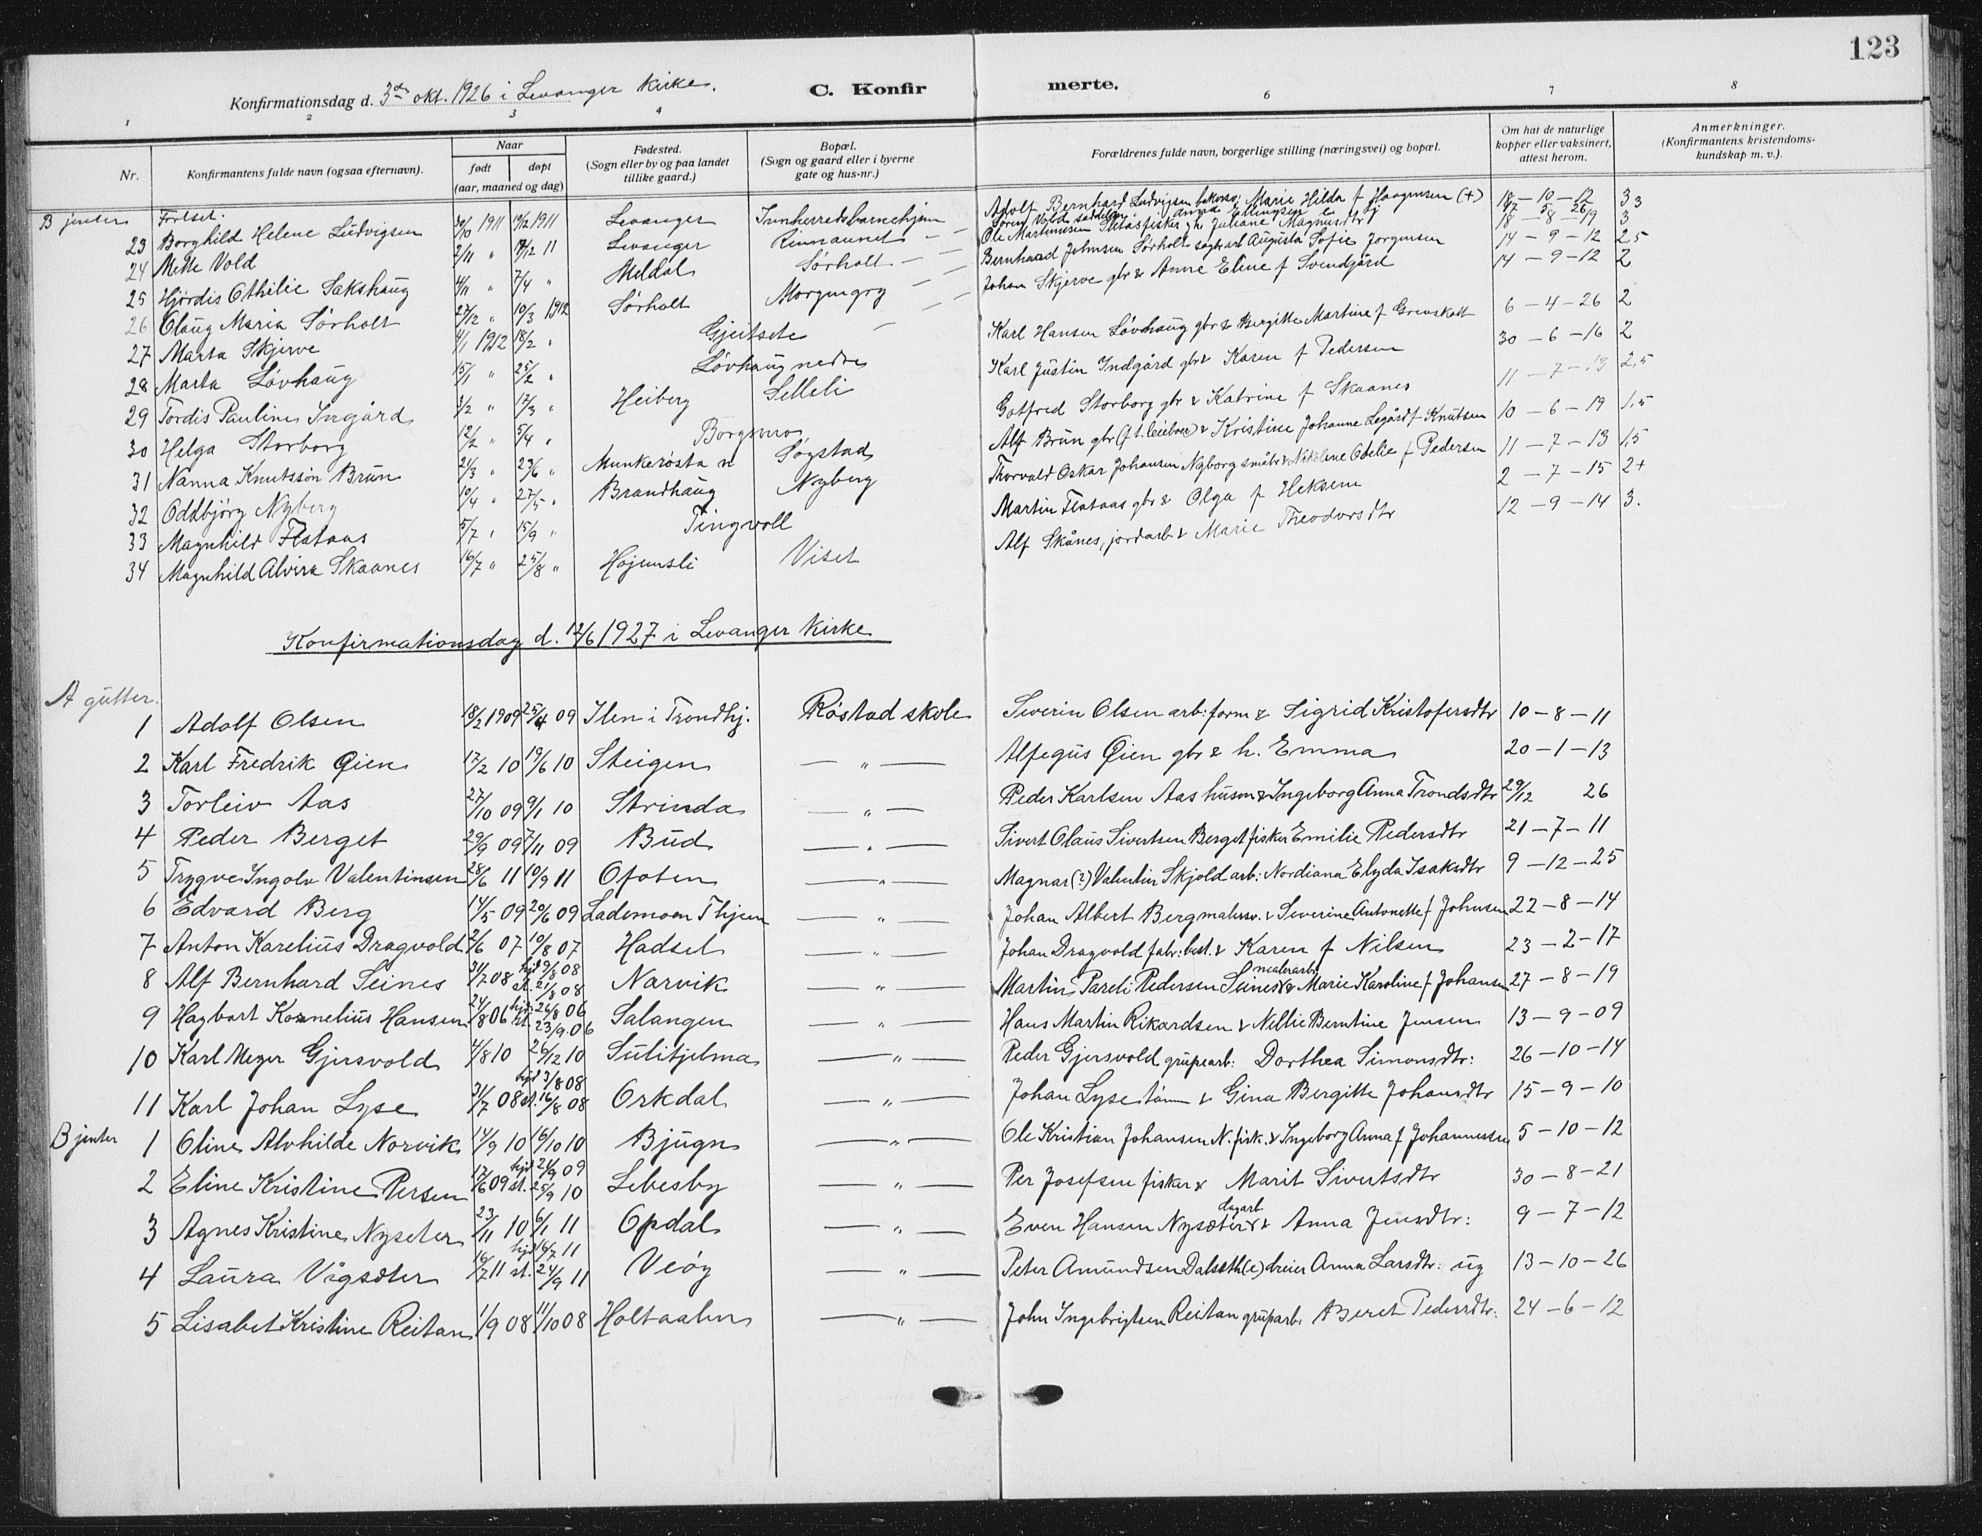 123
Konfirmationsdag d. 3de okt. 1926 i Levanger Kirke. C. Konfirmerte.
1 2 3 4 6 7 8
Nr. Konfirmantens fulde navn (ogsaa efternavn). Naar født døpt (aar, maaned og dag) Fødested. (Sogn eller by og paa landet tillike gaard.) Bopæl. (Sogn og gaard eller i byerne gate og hus-nr.) Forældrenes fulde navn, borgerlige stilling (næringsvei) og bopæl. Om hat de naturlige kopper eller vaksinert, attest herom. Anmerkninger. (Konfirmantens kristendoms-kundskap m. v.).
B jenter Fortset.
23 Borghild Helene Ludvigsen 30/10 1911 1911 Levanger Innherredsbarnehjem Adolf Bernhard Ludvigsen Marie Hilda f Haagensen (+) 18 - 10 - 12 3
24 Mette Vold 2/11 " 17/12 11 Levanger Rinnaunet Ole Martinusen Juliane Magnusdtr 3
25 Hjördis Othilie Sakshaug 4/11 " 7/4 " Meldal Sørholt Bernhard Johnsen Sørholt sagbr arb Augusta Sofie Jørgensen 14 - 9 - 12 2,5
26 Olaug Maria Sørholt 27/12 " 10/3 1912 Sørholt Morgengry Johan Skjerve gbr & Anne Eline f Svendgård 14 - 9 - 12 2
27 Marta Skjerve 4/1 1912 18/2 " Gjeitsete Karl Hansen Løvhaug gbr & Bergitte Martine f Grevskott 6 - 4 - 26 2
28 Marta Løvhaug 15/1 " 25/2 " Løvhaug nedre Karl Justin Indgård gbr & Karen f Pedersen 30 - 6 - 16 2
29 Tordis Pauline Ingård 3/2 " 17/3 " Heiberg Selleli Gotfred Storborg gbr & Katrine f Skaanes 11 - 7 - 13 2,5
30 Helga Storborg 12/2 " 5/4 " Borgsmo Alf Brun gbr & Kristine Johanne Legård f Knutsen 10 - 6 - 19 1,5
31 Nanna Knutsson Brun 21/3 " 23/6 " Munkerøsta n Søgstad Thorvald Oskar Johansen Nyborg småbr & Nikoline Odelie f Pedersen 11 - 7 - 13 1,5
32 Oddbjörg Nyberg 10/4 " 27/5 " Brandhaug Nyberg Martin Flataas gbr & Olga f Heksem 2 - 7 - 15 2+
33 Magnhild Flataas 5/7 " 15/9 " Tingvoll Alf Skånes, jordarb & Marie Theodorsdtr 12 - 9 - 14 3.
34 Magnhild Alvira Skaanes 16/7 " 25/8 " Højemsli Viset
Konfirmationsdag d. 12/6 1927 i Levanger Kirke
A gutter.
1 Adolf Olsen 18/2 1909 25/4 09 Ilen i Trondhj. Røstad skole Severin Olsen arb:form & Sigrid Kristofersdtr 10 - 8 - 11
2 Karl Fredrik Øien 17/2 10 19/6 10 Steigen — " — Alfegus Øien gbr & h. Emma 20 - 1 - 13
3 Torleiv Aas 27/10 09 9/1 10 Strinda — " — Peder Karlsen Aas husm & Ingeborg Anna Trondsdtr 29/12 26
4 Peder Berget 29/9 09 7/11 09 Bud — " — Sivert Olaus Sivertsen Berget fisker Emilie Pedersdtr 21 - 7 - 11
5 Trygve Ingolv Valentinsen 28/6 11 10/9 11 Ofoten — " — Magnar (?) Valentin Skjold arb: Nordiana Elyda Isaksdtr 9 - 12 - 25
6 Edvard Berg 14/5 09 20/6 09 Lademoen Thjem — " — Johan Albert Berg malersv. & Severine Antonette f Johnsen 22 - 8 - 14
7 Anton Karelius Dragvold 2/6 07 10/8 07 Hadsel — " — Johan Dragvold fabr: best. & Karen f Nilsen 23 - 2 - 17
8 Alf Bernhard Seines 31/7 08 hjd 9/8 08 st. 21/8 08 Narvik — " — Martin Pareli Pedersen Seines malerarb & Marie Karoline f Johansen 27 - 8 - 19
9 Hagbart Kornelius Hansen 24/8 06 hjd: 26/8 06 st. 23/9 06 Salangen — " — Hans Martin Rikardsen & Nellie Berntine Jensen 13 - 9 - 09
10 Karl Meyer Gjersvold 4/8 10 26/12 10 Sulitjelma — " — Peder Gjersvold grupearb: Dorthea Simonsdtr: 26 - 10 - 14
11 Karl Johan Lyse 31/7 08 hjd 3/8 08 st. 16/8 08 Orkdal — " — Johan Lyse tøm & Gina Bergitte Johansdtr 15 - 9 - 10
B jenter 1 Oline Alvhilde Norvik 14/9 10 16/10 10 Bjugn — " — Ole Kristian Johansen N. fisk. & Ingeborg Anna f Johannessen 5 - 10 - 12
2 Eline Kristine Persen 17/6 09 hjd 21/9 09 st. 25/9 10 Lebesby — " — Per Josefsen fisker & Marit Sivertsdtr 30 - 8 - 21
3 Agnes Kristine Nyseter 23/11 10 6/1 11 Opdal — " — Even Hansen Nysæter dagarb & Anna Jensdtr: 9 - 7 - 12
4 Laura Vågsæter 16/7 11 hjd 16/7 11 st. 24/9 11 Veøy — " — Peter Amundsen Dalseth(e) dreier Anna Larsdtr: ug 13 - 10 - 26
5 Lisabet Kristine Reitan 1/9 08 11/10 08 Holtaalen — " — John Ingebrigtsen Reitan gruparb. & Beret Pedersdtr: 24 - 6 - 12